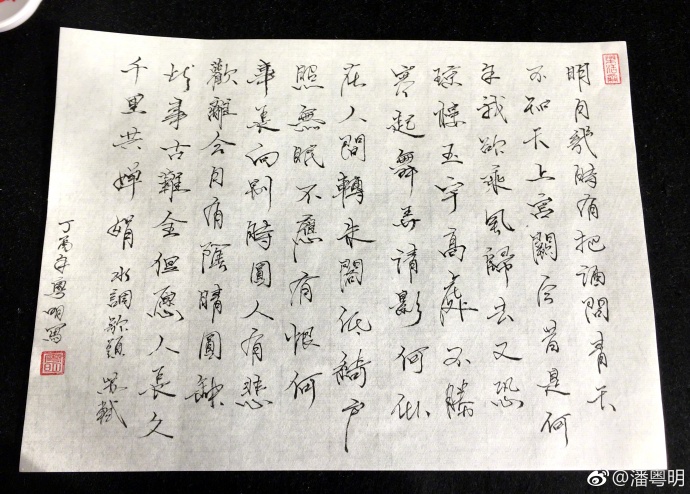 明月幾時有把酒問青天
不知天上宮闕今昔是何
年我欲乘風歸去又恐
瓊樓玉宇高處不勝
寒起舞弄清影何似
在人間轉朱閣低綺戶
照無眠不應有恨何
事長向別時圓人有悲
歡離合月有陰晴圓缺
此事古難全但願人長久
千里共嬋娟 水調歌頭 蘇軾
丁酉年粵明寫
@潘粤明